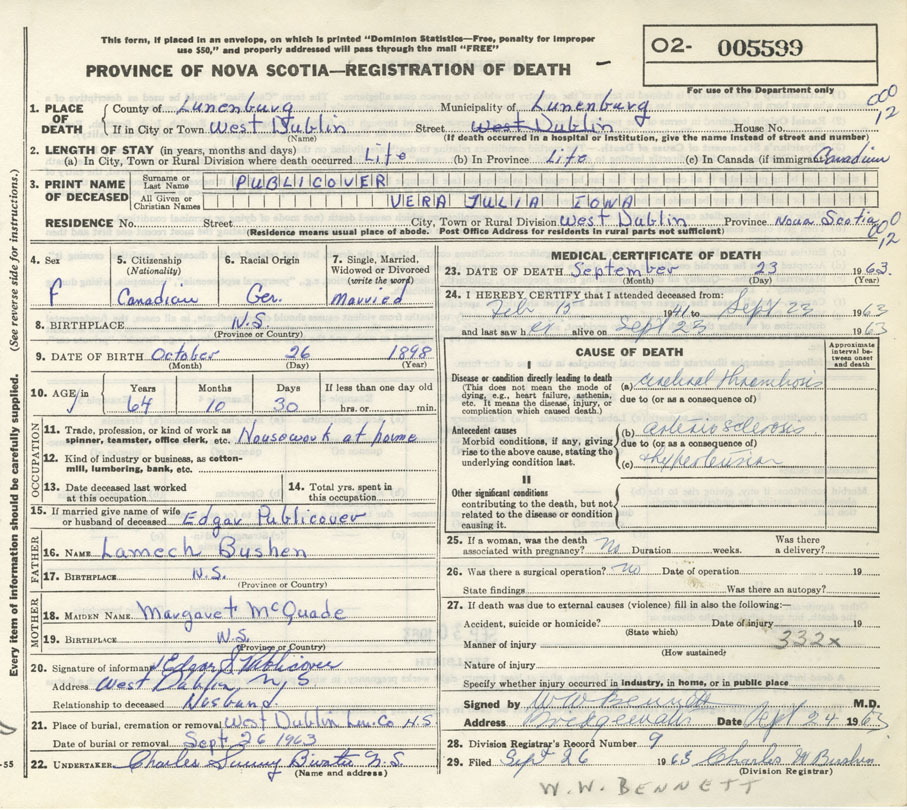 This form, if placed in an envelope, on which is printed "Dominion Statistics—Free, penalty for improper
use $50," and properly addressed will pass through the mail "FREE"
O2- 005599
PROVINCE OF NOVA SCOTIA—REGISTRATION OF DEATH
For use of the Department only
1. PLACE OF DEATH { County of Lunenburg Municipality of Lunenburg 000
If in City or Town West Dublin Street West Dublin House No. 12
(Name) (If death occurred in a hospital or institution, give the name instead of street and number)
2. LENGTH OF STAY (in years, months and days)
(a) In City, Town or Rural Division where death occurred Life (b) In Province Life (c) In Canada (if immigrant) Canadian
3. PRINT NAME OF DECEASED { Surname or Last Name PUBLICOVER
All Given or Christian Names VERA JULIA IOWA
RESIDENCE No. Street City, Town or Rural Division West Dublin Province Nova Scotia
(Residence means usual place of abode. Post Office Address for residents in rural parts not sufficient) 12
4. Sex F
5. Citizenship (Nationality) Canadian
6. Racial Origin Ger.
7. Single, Married, Widowed or Divorced (write the word) Married
8. BIRTHPLACE N.S.
(Province or Country)
9. DATE OF BIRTH October 26 1898
(Month) (Day) (Year)
10. AGE in Years Months Days If less than one day old
64 10 30 hrs. or min.
OCCUPATION
11. Trade, profession, or kind of work as
spinner, teamster, office clerk, etc. Housework at home
12. Kind of industry or business, as cotton-
mill, lumbering, bank, etc.
13. Date deceased last worked at this occupation
14. Total yrs. spent in this occupation
15. If married give name of wife
or husband of deceased Edgar Publicover
FATHER
16. NAME Lamech Bushen
17. BIRTHPLACE N.S.
(Province or Country)
MOTHER
18. MAIDEN NAME Margaret McQuade
19. BIRTHPLACE N.S.
(Province or Country)
20. Signature of informant Edgar S Publicover
Address West Dublin N S
Relationship to deceased Husband
21. Place of burial, cremation or removal West Dublin Lun. Co N.S.
Date of burial or removal Sept 26 1963
22. UNDERTAKER Charles N.S.
(Name and address)
MEDICAL CERTIFICATE OF DEATH
23. DATE OF DEATH September 23 1963.
(Month) (Day) (Year)
24. I HEREBY CERTIFY that I attended deceased from:
Feb 15 1941 to Sept 23 1963
and last saw her alive on Sept 23 1963
CAUSE OF DEATH
Approximate interval between onset and death
I
Disease or condition directly leading to death
(This does not mean the mode of
dying, e.g., heart failure, asthenia,
etc. It means the disease, injury, or
complication which caused death.)
(a) Cerebral thrombosis
due to (or as a consequence of)
Antecedent causes
Morbid conditions, if any, giving
rise to the above cause, stating the
underlying condition last.
(b) arteriosclerosis
due to (or as a consequence of)
(c) Hypertension
II
Other significant conditions
contributing to the death, but not
related to the disease or condition
causing it.
25. If a woman, was the death
associated with pregnancy? No Duration weeks. Was there a delivery?
26. Was there a surgical operation? no Date of operation 19
State findings Was there an autopsy?
27. If death was due to external causes (violence) fill in also the following:—
Accident, suicide or homicide? Date of injury 19
(State which)
Manner of injury 332x
(How sustained)
Nature of injury
Specify whether injury occurred in industry, in home, or in public place
Signed by W W Bennett M.D.
Address Bridgewater Date Sept 24 1963
28. Division Registrar's Record Number 9
29. Filed Sept 26 1963 Charles M Bushen
(Division Registrar)
W.W. BENNETT
Every item of information should be carefully supplied. (See reverse side for instructions.)
-55